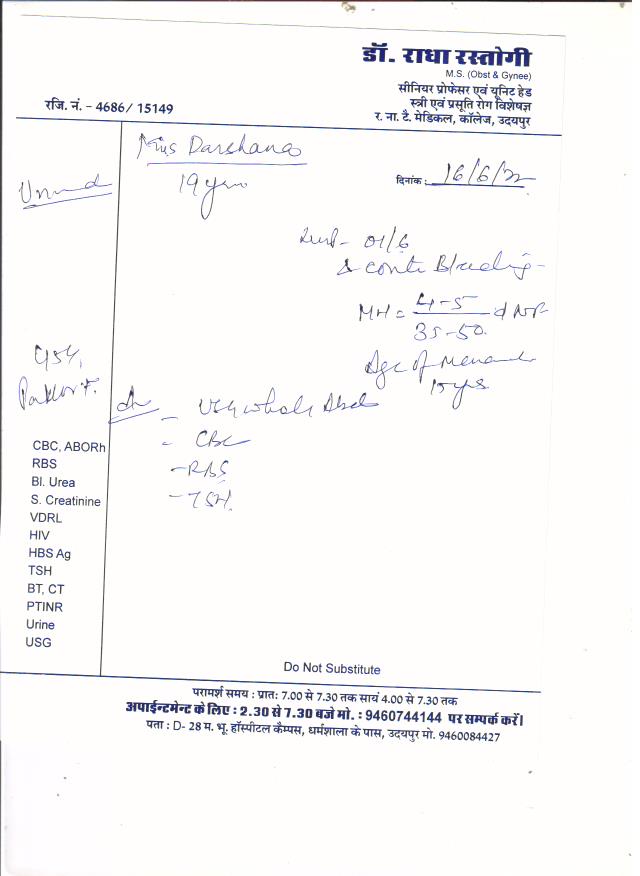 डॉ. राधा रस्तोगी
M.S. (Obst & Gynee)
सीनियर प्रोफेसर एवं यूनिट हेड
स्त्री एवं प्रसूति रोग विशेषज्ञ
र. ना. टै. मेडिकल, कॉलेज, उदयपुर
रजि. नं. - 4686/ 15149
Miss Darshana
19 years
दिनांक : 16/6/22
01/6
& conti Bleeding -
MH = 4-5
35-50.
Age of
15 yrs
USG whole Abd
- CBC
- RBS
- TSH.
CBC, ABORh
RBS
Bl. Urea
S. Creatinine
VDRL
HIV
HBS Ag
TSH
BT, CT
PTINR
Urine
USG
Do Not Substitute
परामर्श समय : प्रातः 7.00 से 7.30 तक सायं 4.00 से 7.30 तक
अपाईन्टमेन्ट के लिए : 2.30 से 7.30 बजे मो. : 9460744144 पर सम्पर्क करें।
पता : D- 28 म. भू. हॉस्पीटल कैम्पस, धर्मशाला के पास, उदयपुर मो. 9460084427